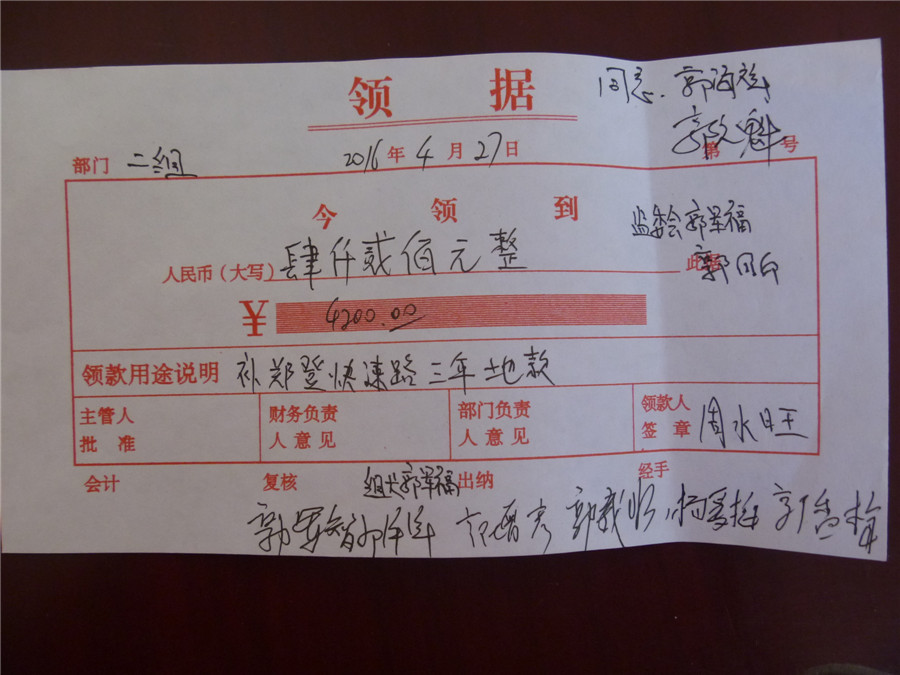 领据
同意. 郭海
部门 二组 2016年4月27日 第 号
今领到
监委会郭军福
人民币（大写）肆仟贰佰元整 此据
¥ 4200.00
领款用途说明 补郑登快速路三年地款
主管人批准 财务负责人意见 部门负责人意见 领款人签章 周水旺
会计 复核 组长郭军福 出纳 经手